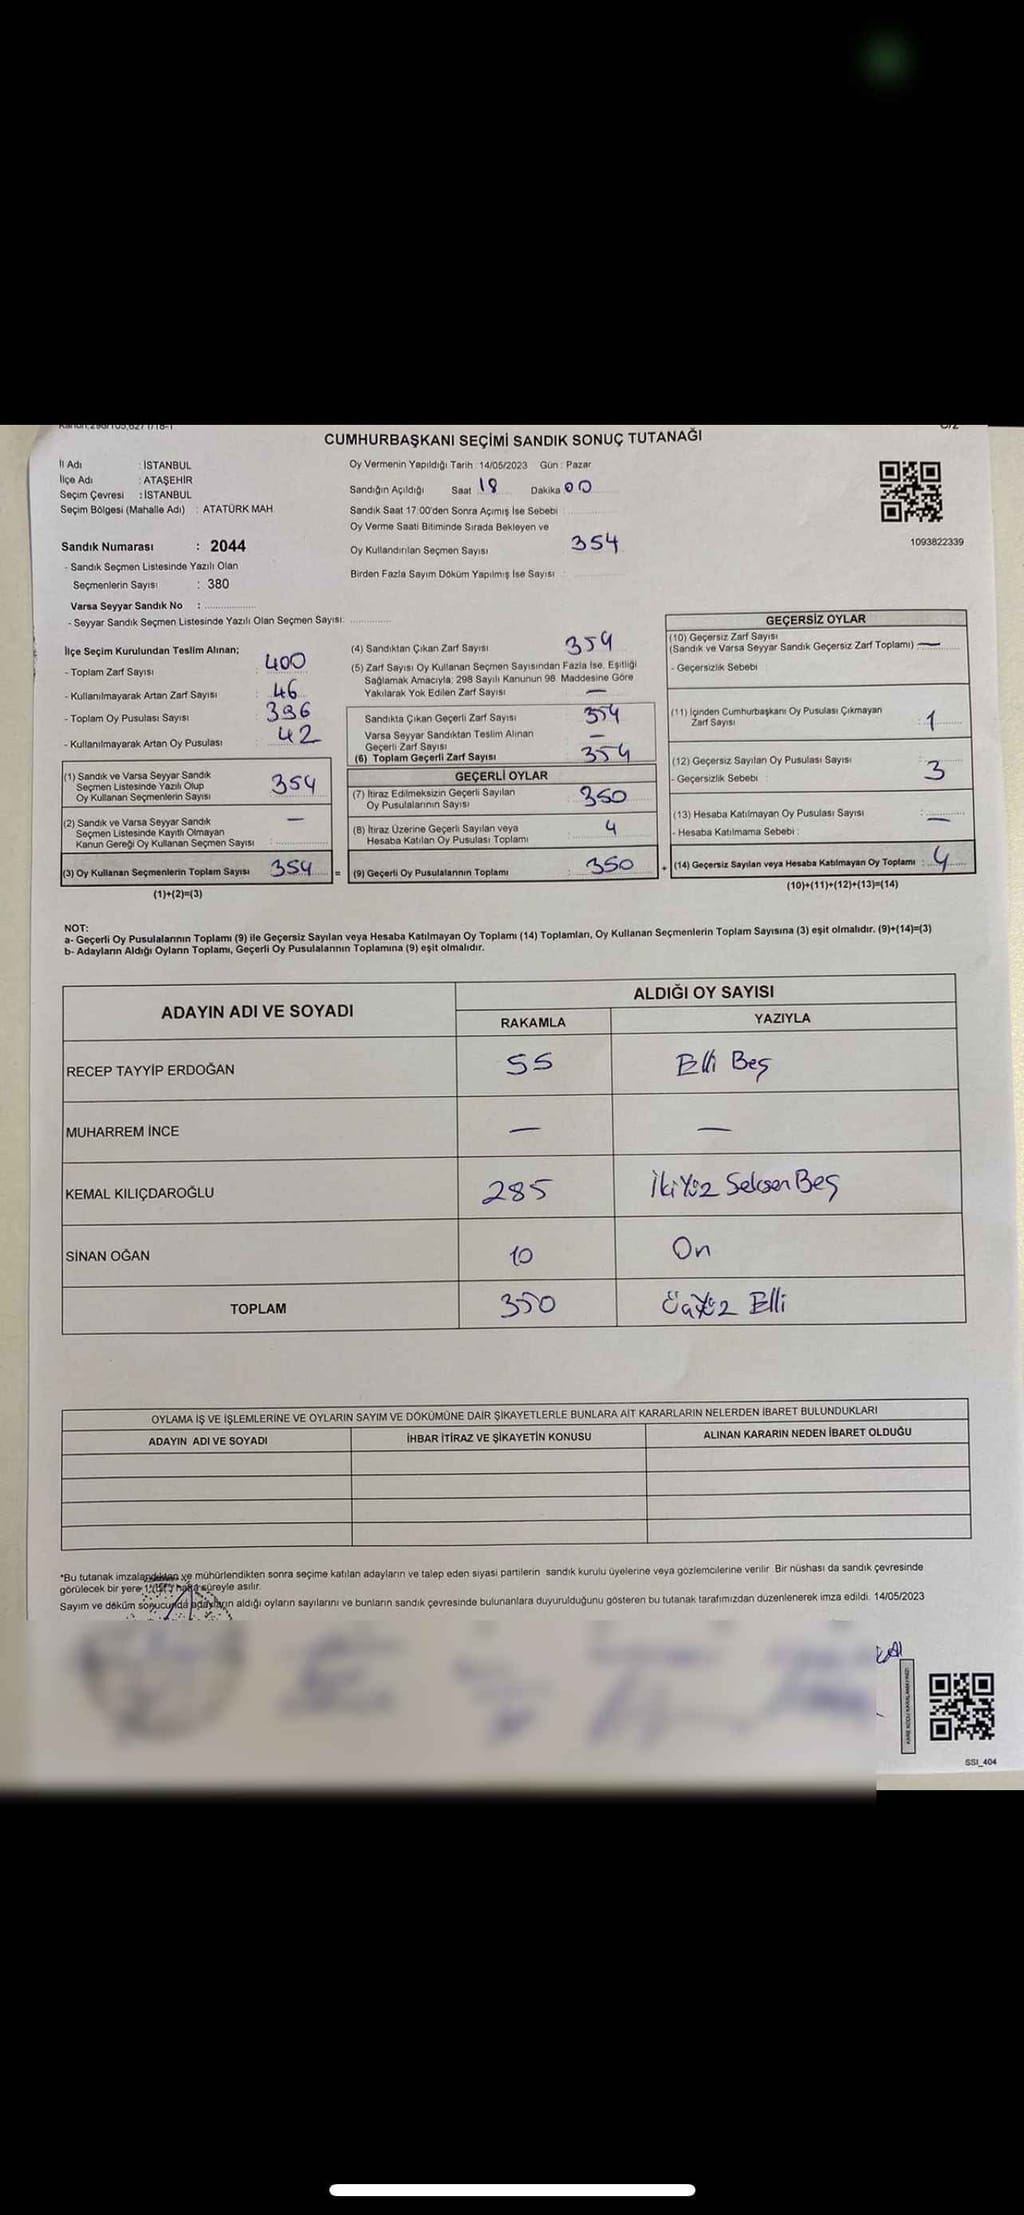 CUMHURBAŞKANI SEÇİMİ SANDIK SONUÇ TUTANAĞI
İl Adı : İSTANBUL
İlçe Adı : ATAŞEHİR
Seçim Çevresi : İSTANBUL
Seçim Bölgesi (Mahalle Adı) : ATATÜRK MAH.
Sandık Numarası : 2044
- Sandık Seçmen Listesinde Yazılı Olan
Seçmenlerin Sayısı : 380
Varsa Seyyar Sandık No :
- Seyyar Sandık Seçmen Listesinde Yazılı Olan Seçmen Sayısı:
Oy Vermenin Yapıldığı Tarih : 14/05/2023 Gün : Pazar
Sandığın Açıldığı Saat 18 Dakika 00
Sandık Saat 17:00'den Sonra Açımış İse Sebebi :
Oy Verme Saati Bitiminde Sırada Bekleyen ve
Oy Kullandırılan Seçmen Sayısı 354
Birden Fazla Sayım Döküm Yapılmış İse Sayısı :
1093822339
İlçe Seçim Kurulundan Teslim Alınan;
- Toplam Zarf Sayısı : 400
- Kullanılmayarak Artan Zarf Sayısı : 46
- Toplam Oy Pusulası Sayısı : 396
- Kullanılmayarak Artan Oy Pusulası : 42
(1) Sandık ve Varsa Seyyar Sandık
Seçmen Listesinde Yazılı Olup
Oy Kullanan Seçmenlerin Sayısı 354
(2) Sandık ve Varsa Seyyar Sandık
Seçmen Listesinde Kayıtlı Olmayan
Kanun Gereği Oy Kullanan Seçmen Sayısı : —
(3) Oy Kullanan Seçmenlerin Toplam Sayısı 354 =
(1)+(2)=(3)
(4) Sandıktan Çıkan Zarf Sayısı 354
(5) Zarf Sayısı Oy Kullanan Seçmen Sayısından Fazla İse, Eşitliği
Sağlamak Amacıyla; 298 Sayılı Kanunun 98. Maddesine Göre
Yakılarak Yok Edilen Zarf Sayısı —
Sandıkta Çıkan Geçerli Zarf Sayısı 354
Varsa Seyyar Sandıktan Teslim Alınan
Geçerli Zarf Sayısı —
(6) Toplam Geçerli Zarf Sayısı 354
GEÇERLİ OYLAR
(7) İtiraz Edilmeksizin Geçerli Sayılan
Oy Pusulalarının Sayısı 350
(8) İtiraz Üzerine Geçerli Sayılan veya
Hesaba Katılan Oy Pusulası Toplamı 4
(9) Geçerli Oy Pusulalarının Toplamı : 350 +
GEÇERSİZ OYLAR
(10) Geçersiz Zarf Sayısı
(Sandık ve Varsa Seyyar Sandık Geçersiz Zarf Toplamı) —
- Geçersizlik Sebebi
(11) İçinden Cumhurbaşkanı Oy Pusulası Çıkmayan
Zarf Sayısı : 1
(12) Geçersiz Sayılan Oy Pusulası Sayısı 3
- Geçersizlik Sebebi :
(13) Hesaba Katılmayan Oy Pusulası Sayısı : —
- Hesaba Katılmama Sebebi :
(14) Geçersiz Sayılan veya Hesaba Katılmayan Oy Toplamı : 4
(10)+(11)+(12)+(13)=(14)
NOT:
a- Geçerli Oy Pusulalarının Toplamı (9) ile Geçersiz Sayılan veya Hesaba Katılmayan Oy Toplamı (14) Toplamları, Oy Kullanan Seçmenlerin Toplam Sayısına (3) eşit olmalıdır. (9)+(14)=(3)
b- Adayların Aldığı Oyların Toplamı, Geçerli Oy Pusulalarının Toplamına (9) eşit olmalıdır.
ADAYIN ADI VE SOYADI ALDIĞI OY SAYISI
RAKAMLA YAZIYLA
RECEP TAYYİP ERDOĞAN 55 Elli Beş
MUHARREM İNCE — —
KEMAL KILIÇDAROĞLU 285 İkiYüz Seksen Beş
SİNAN OĞAN 10 On
TOPLAM 350 ÜçYüz Elli
OYLAMA İŞ VE İŞLEMLERİNE VE OYLARIN SAYIM VE DÖKÜMÜNE DAİR ŞİKAYETLERLE BUNLARA AİT KARARLARIN NELERDEN İBARET BULUNDUKLARI
ADAYIN ADI VE SOYADI İHBAR İTİRAZ VE ŞİKAYETİN KONUSU ALINAN KARARIN NEDEN İBARET OLDUĞU
*Bu tutanak imzalandıktan ve mühürlendikten sonra seçime katılan adayların ve talep eden siyasi partilerin sandık kurulu üyelerine veya gözlemcilerine verilir. Bir nüshası da sandık çevresinde
görülecek bir yere hafta süreyle asılır.
Sayım ve döküm sonucunda adayların aldığı oyların sayılarını ve bunların sandık çevresinde bulunanlara duyurulduğunu gösteren bu tutanak tarafımızdan düzenlenerek imza edildi. 14/05/2023
KARE KODU KARALAMAYINIZ!
SSI_404